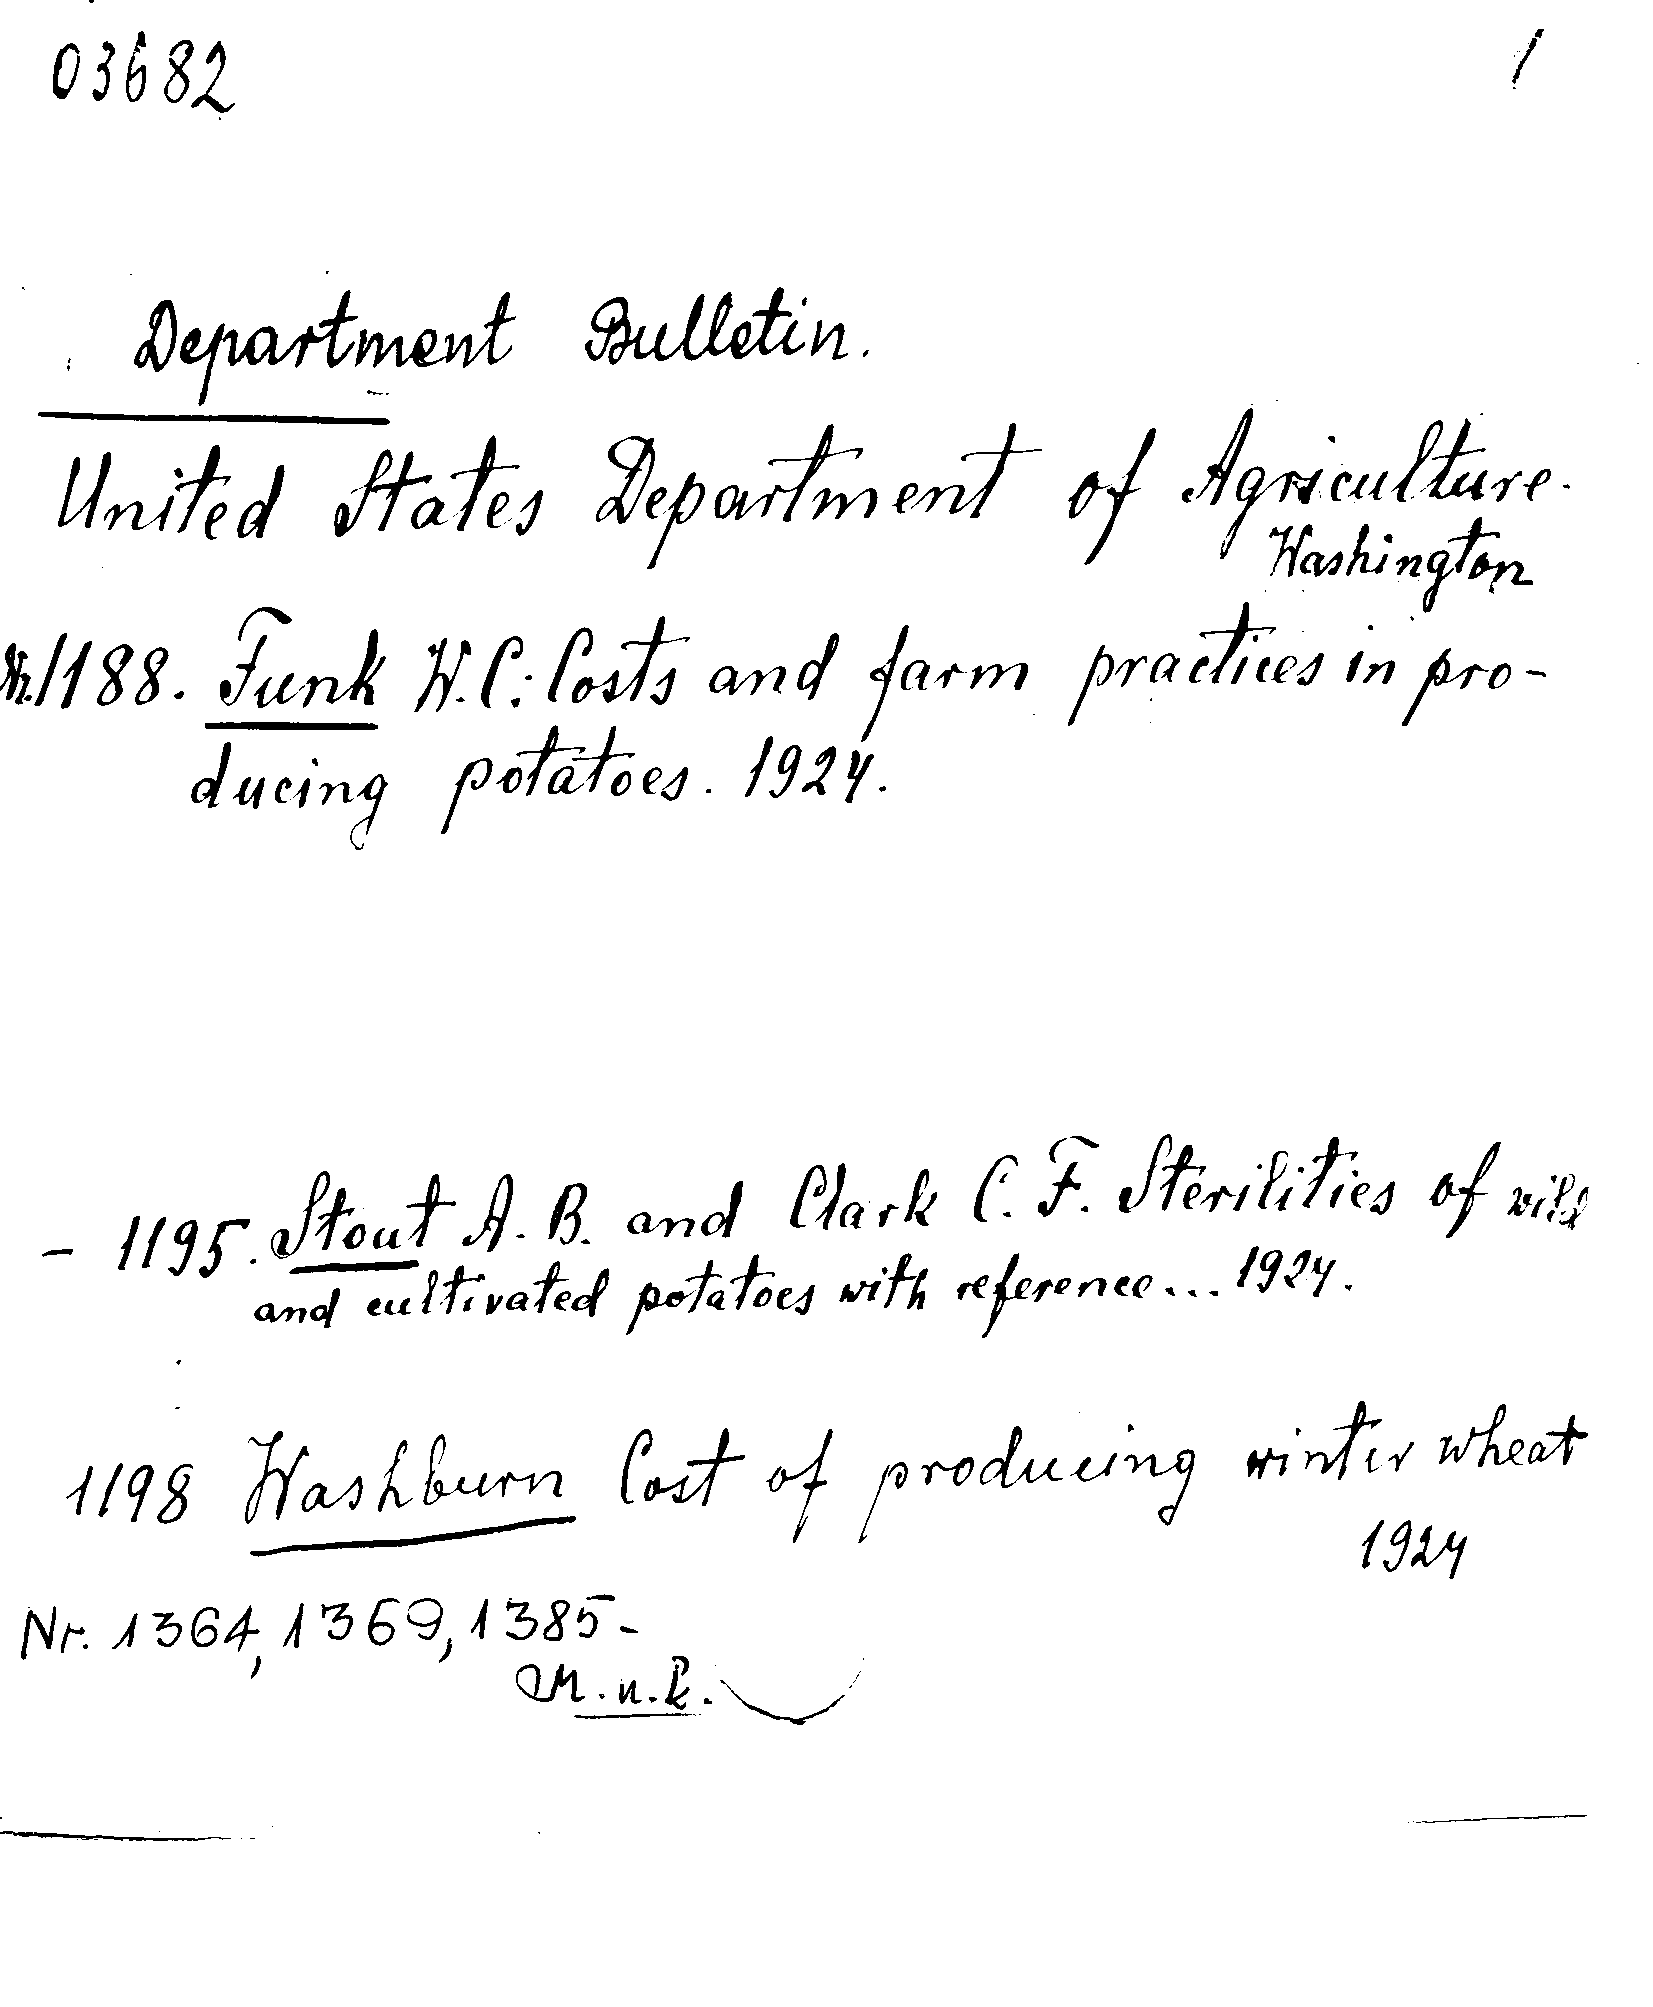 03682 1
Department Bulletin.
United States Department of Agriculture.
Washington
Nr. 1188. Funk W.C.: Costs and farm practices in pro-
ducing potatoes. 1924.
- 1195. Stout A. B. and Clark C. F. Sterilities of wild
and cultivated potatoes with reference... 1924.
1198 Washburn Cost of producing winter wheat
1924
Nr. 1364, 1369, 1385-